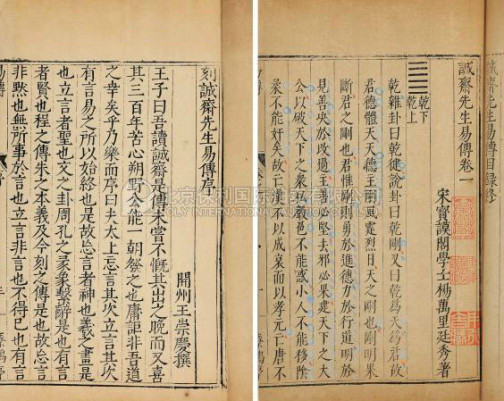 刻誠齋先生易傳序
開州王崇慶撰
王子曰吾讀誠齋是傳未嘗不慨其出之晚而又喜
其三百年苦心朔野公能一朝發之也庸詎非吾道
之幸矣乎乃樂而序曰夫太上忘言其次立言其次
有言易之所以始終也是故忘言者神也羲之畫是
也立言者聖也文之卦周孔之彖象繫辭是也有言
者賢也程之傳朱之本義及今刻之傳是也故忘言
非黙也無所事於言也立言非言也不得已也有言
誠齋先生易傳目錄終
誠齋先生易傳卷一
宋寶謨閣學士楊萬里廷秀著
乾下
乾上
乾雜卦曰乾健說卦曰乾剛又曰乾為天為君故
君德體天天德主剛風霆烈日天之剛也剛明果
斷君之剛也君惟剛則勇於進德力於行道明於
見善決於改過主善必堅去邪必果建天下之大
公以破天下之衆私聲色不能惑小人不能移陰
柔不能奸矣故亡漢不以成哀而以孝元亡唐不